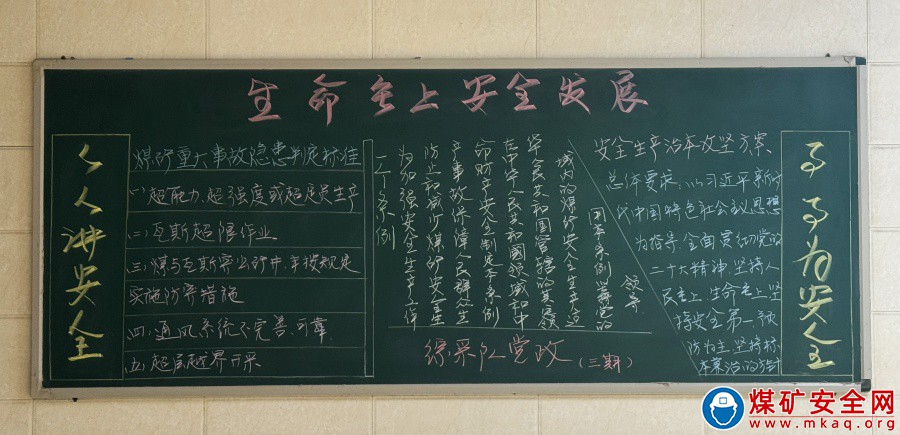 生命至上安全发展
人人讲安全
煤矿重大事故隐患判定标准
(一)超能力、超强度或超定员生产
(二)瓦斯超限作业
(三)煤与瓦斯突出矿井,未按规定
实施防突措施
(四)通风系统不完善、可靠
(五)超层越界开采
(一)条例
为加强安全生产工作
防止和减少煤矿安全生
产事故保障人民群众生
命财产安全制定本条例
在中华人民共和国领域和中
华人民共和国管辖的其他
海域内的煤矿安全生产适
用本条例坚持党的
领导
综采队党政
(三期)
安全生产治本攻坚方案
总体要求:以习近平新时
代中国特色社会主义思想
为指导,全面贯彻党的
二十大精神,坚持人
民至上、生命至上,坚
持安全第一、预
防为主,坚持标
本兼治的方针
事事为安全
煤矿安全网
www.mkaq.org